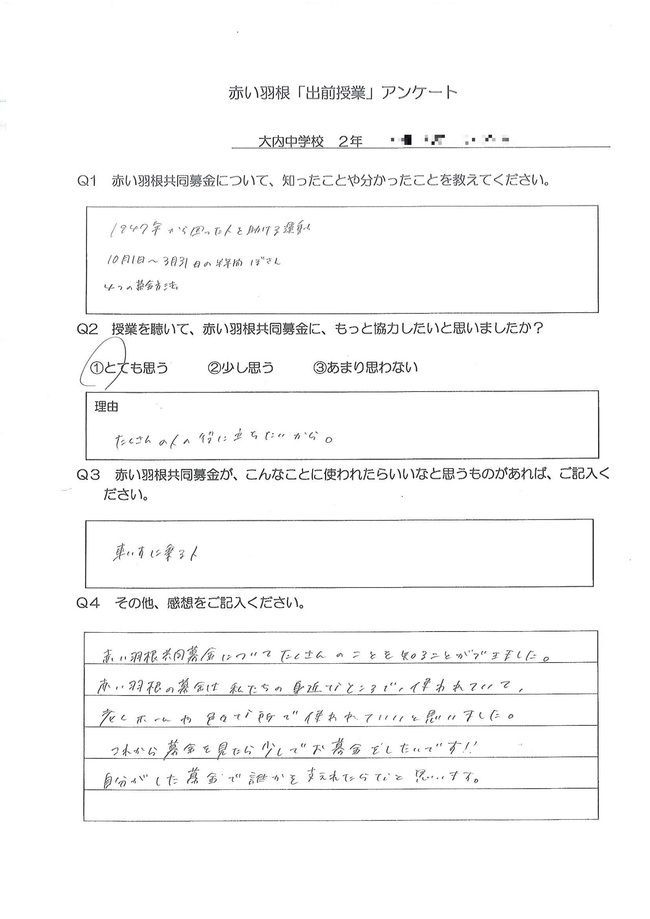 赤い羽根「出前授業」アンケート
大内中学校 2年
Q1 赤い羽根共同募金について、知ったことや分かったことを教えてください。
1947年から困った人を助ける運動
10月1日～3月31日の半年間
4つの募金方法。
Q2 授業を聴いて、赤い羽根共同募金に、もっと協力したいと思いましたか？
①とても思う ②少し思う ③あまり思わない
理由
たくさんの人の役に立ちたいから。
Q3 赤い羽根共同募金が、こんなことに使われたらいいなと思うものがあれば、ご記入く
ださい。
車いすに乗る人
Q4 その他、感想をご記入ください。
赤い羽根共同募金についてたくさんのことを知ることができました。
赤い羽根の募金は私たちの身近なところで、使われていて、
老人ホームや色々な所で使われていていいと思いました。
これから募金を見たら少しでも募金をしたいです!!
自分がした募金で誰かを支えれたらなと思います。